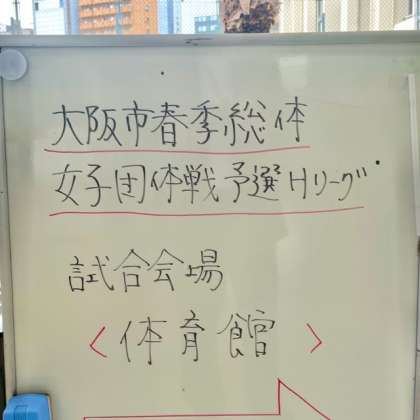 大阪市春季総体
女子団体戦予選Hリーグ
試合会場
〈体育館〉